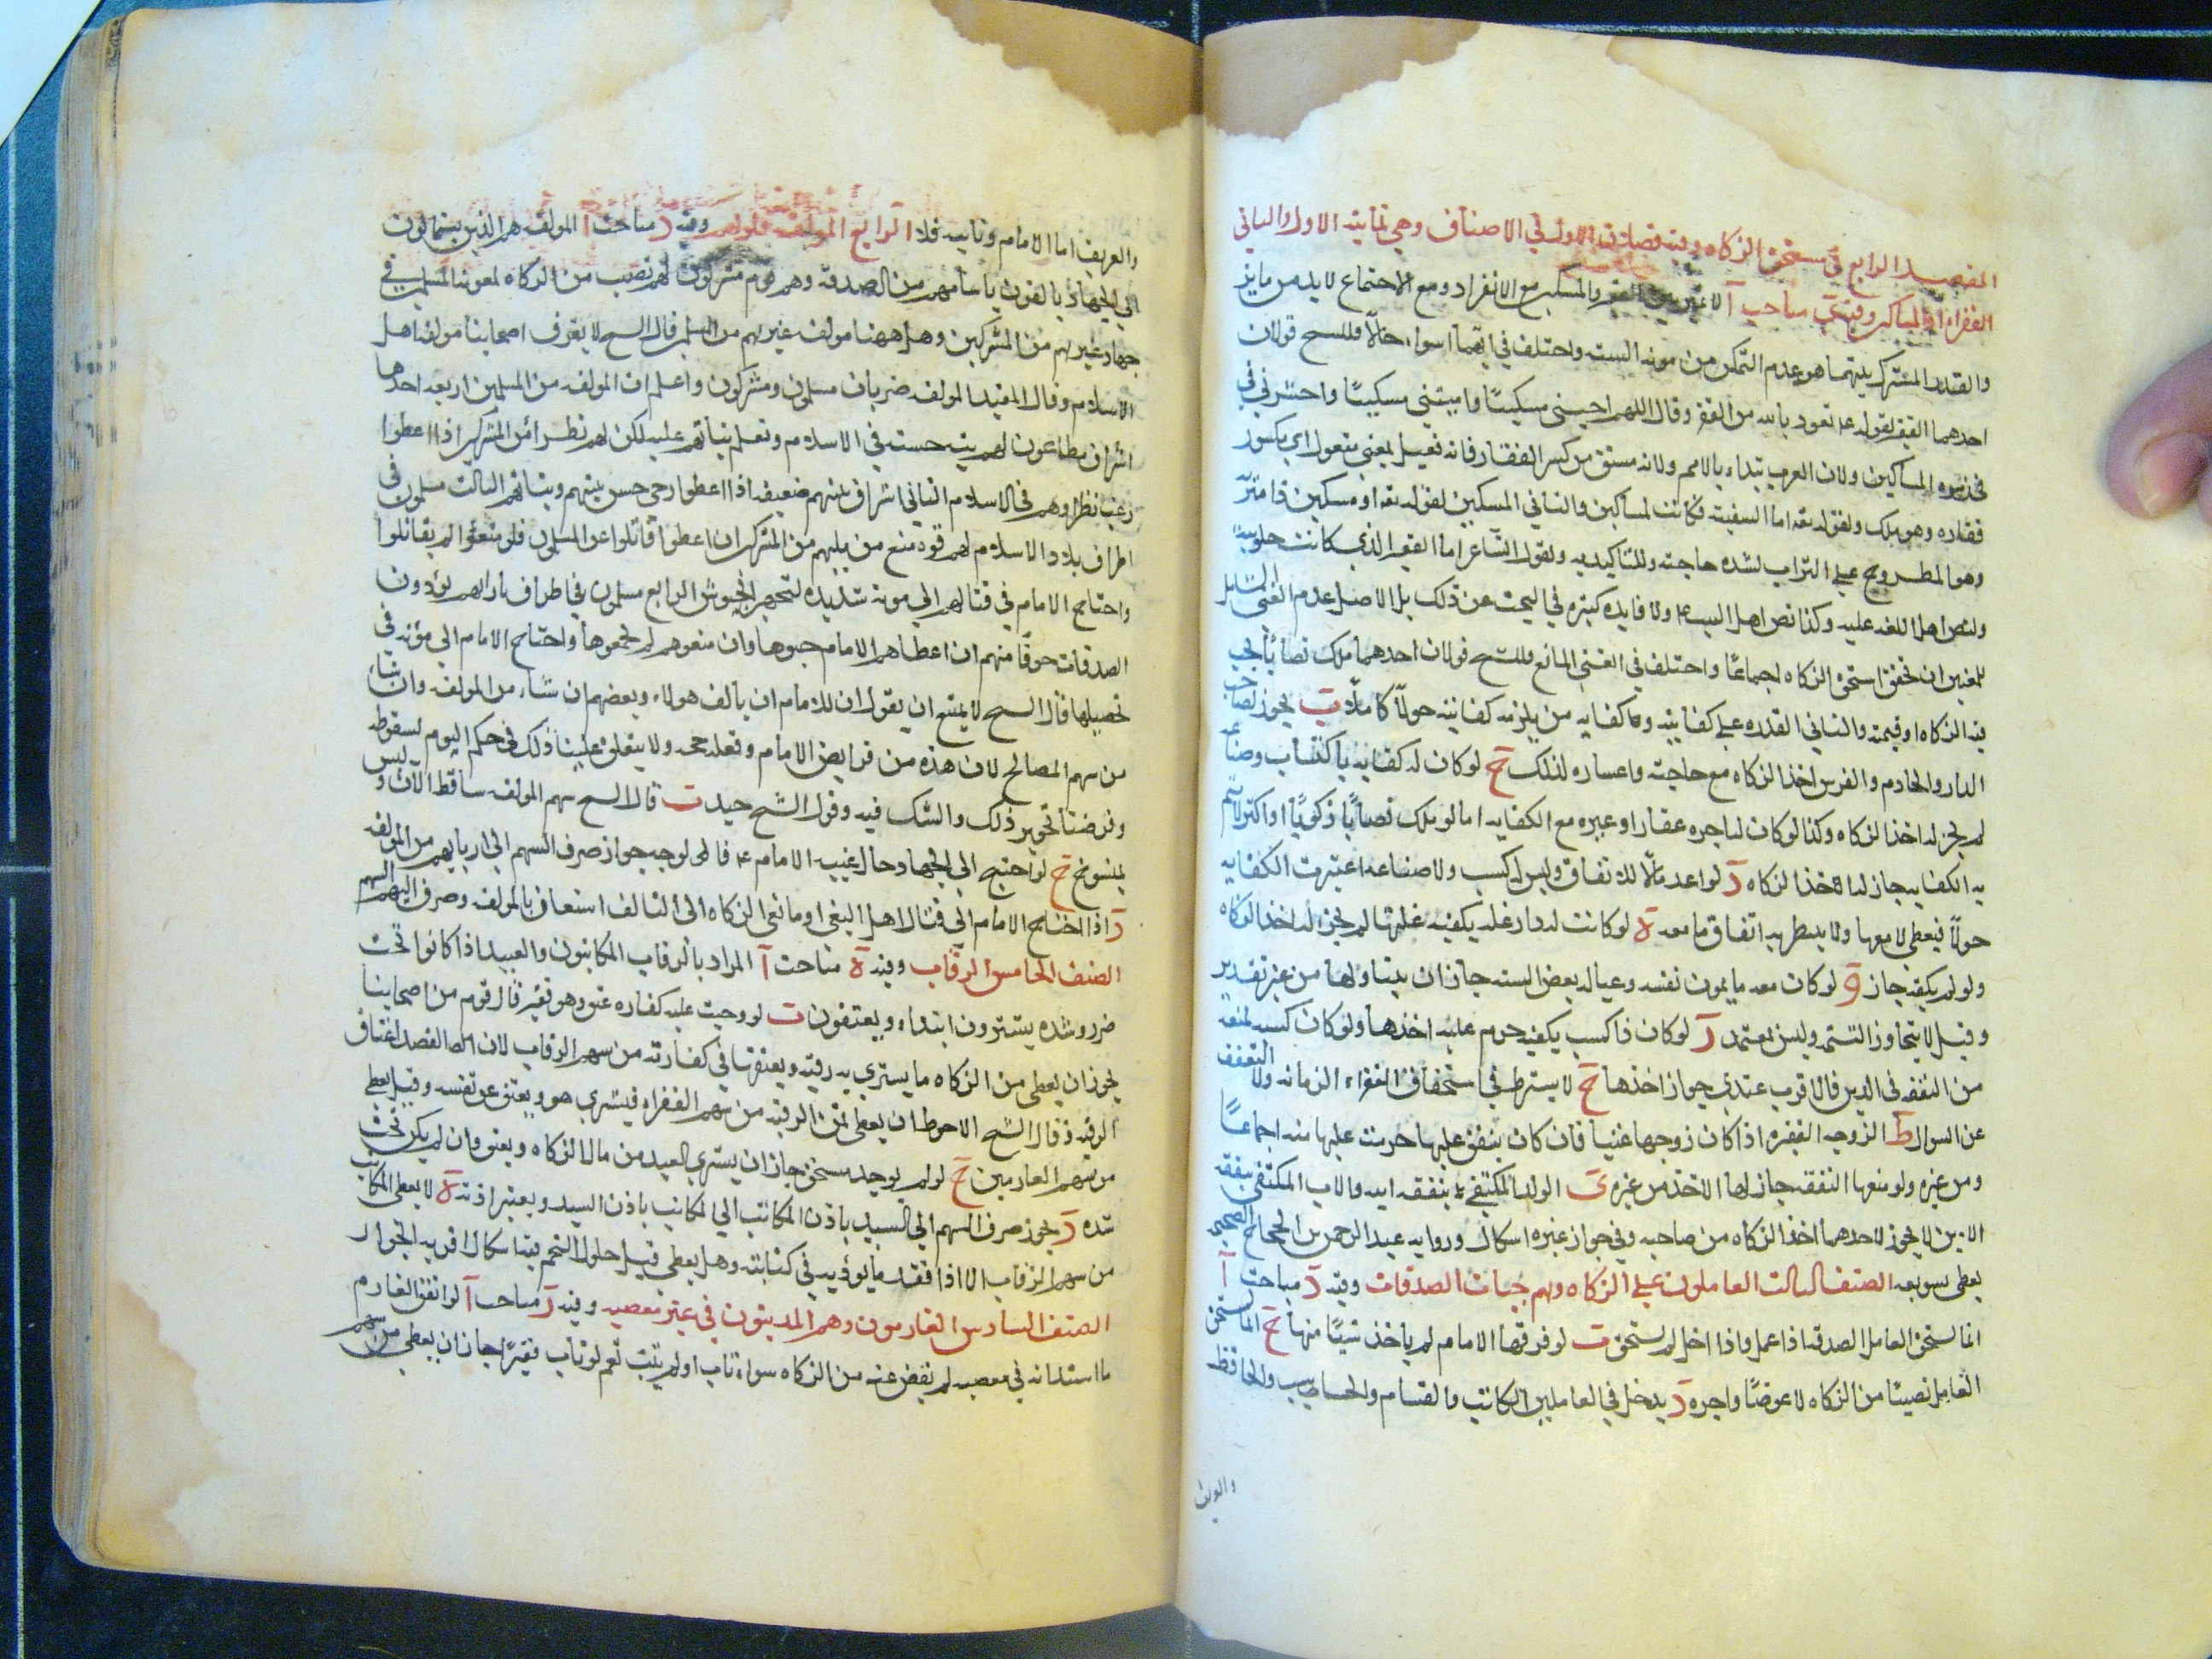 المقصد الرابع في مستحق الزكاه وفيه فصلان الاول في الاصناف وهي ثمانيه الاول والثاني
الفقراء والمساكين وفيه ي مباحث آ لا تمييز بين الفقير والمسكين مع الانفراد ومع الاجتماع لا بد من مايز
والقدر المشترك بينهما هو عدم التمكن من مونه السنه واختلف في ايهما اسواء حالًا فللشيخ قولان
احدهما الفقير لقوله ع نعوذ بالله من الفقر وقال اللهم احيني مسكينًا واميتني مسكينًا واحشرني في
زمره المساكين ولان العرب تبداء بالاهم ولانه مشتق من كسر الفقار فانه فعيل بمعنى مفعول اي مكسور
فقاره وهو هلك ولقوله تعه اما السفينه فكانت لمساكين والثاني المسكين لقوله تعه او مسكين ذا متربه
وهو المطروح على التراب لشده حاجته وللتاكيد به ولقول الشاعر اما الفقير الذي كانت حلوبته
ولنص اهل اللغه عليه وكذا نص اهل البيت ع ولا فايده كثيره في البحث عن ذلك بل الاصل عدم الغنى الشامل
للمعنيين ان تحقق استحق الزكاه اجماعًا واختلف في الغنى المانع فللشيخ قولان احدهما ملك نصاب تجب
فيه الزكاه او قيمته والثاني القدره على كفايته وكفايه من يلزمه كفايته حولًا كاملًا ب يجوز لصاحب
الدار والخادم والفرس اخذ الزكاه مع حاجته واعساره لذلك ج لو كان له كفايه باكتساب وصناعه
لم يجز له اخذ الزكاه وكذا لو كان له اجره عقار او غيره مع الكفايه اما لو ملك نصابًا زكويًا او اكثر لا تتم
به الكفايه جاز له الاخذ الزكاه د لو اعد مالًا للانفاق وليس له كسب ولا صناعه اعتبرت الكفايه
حولًا فيعطى لا معها ولا يضطر به انفاق ما معه ه لو كانت له دار غله يكفيه غلتها لم يجز له اخذ الزكاه
ولو لم يكفه جاز و لو كان معه ما يمون نفسه وعياله بعض السنه جاز ان يتناولها من غير تقدير
وقيل لا يتجاوز التتمه وليس بمعتمد ز لو كان ذا كسب يكفيه حرم عليه اخذها ولو كان كسبه يمنعه
من التفقه في الدين فالاقرب عندي جواز اخذها ح لا يشترط في استحقاق الفقراء الزمانه ولا التعفف
عن السوال ط الزوجه الفقيره اذا كان زوجها غنيا فان كان ينفق عليها حرمت عليها منه اجماعًا
ومن غيره ولو منعها النفقه جاز لها الاخذ من غيره ي الولد المكتفي بنفقه ابيه والاب المكتفي بنفقه
الابن لا يجوز لاحدهما اخذ الزكاه من صاحبه وفي جواز غيره اشكال وروايه عبد الرحمن بن الحجاج الصحيحه
يعطى بسويعه الصنف الثالث العاملون على الزكاه وهم جباة الصدقات وفيه د مباحث آ
انما يستحق العامل الصدقه اذا عمل واذا اخل لم يستحق ب لو فرقها الامام لم ياخذ شيًا منها ج انما يستحق
العامل نصيبًا من الزكاه لا عوضًا واجره د يدخل في العاملين الكاتب والقسام والحساب والحافظ
والعريف
والعريف اما الامام ونايبه فلا الرابع المولفه قلوبهم وفيه د مباحث آ المولفه هم الذين يستمالون
الي الجهاد بالفون باسامهم من الصدقه وهم قوم مشركون لهم نصيب من الزكاه لمعونه المسلمين في
جهاد غيرهم من المشركين وهل ههنا مولفه غيرهم من المسلمين قال الشيخ لا يعرف اصحابنا مولفه اهل
الاسلام وقال المفيد المولفه ضربان مسلمون ومشركون واعلم ان المولفه من المسلمين اربعه احدها
اشراف مطاعون لهم نيه حسنه في الاسلام ونعلم ثباتهم عليه لكن لهم نظراء من المشركين اذا اعطوا
رغب نظراوهم في الاسلام الثاني اشراف نيتهم ضعيفه اذا اعطوا رجي حسن نيتهم وثباتهم الثالث مسلمون في
اطراف بلاد الاسلام لهم قوه منع من يليهم من المشركين ان اعطوا قاتلوا عن المسلمين فلو منعوا لم يقاتلوا
واحتاج الامام في قتالهم الي مونه شديده لتجهيز الجيوش الرابع مسلمون في اطراف بازايهم يؤدون
الصدقات خوفًا منهم ان اعطاهم الامام جبوها وان منعوهم لم يجمعوها واحتاج الامام الي مؤنه في
تحصيلها قال الشيخ لا يمتنع ان يقول ان للامام ان يالف هولاء ويعضهم ان شاء من المولفه وان شاء
من سهم المصالح لان هذه من فرايض الامام وفعله حجه ولا يتعلق علينا ذلك في حكم اليوم لسقوطه
وفرضنا تجويز ذلك والشك فيه وقول الشيخ جيد ب قال الشيخ سهم المولفه ساقط الآن وليس
بمنسوخ ج لو احتيج الى الجهاد حال غيبه الامام ع فالاولى لوجب جواز صرف السهم الى اربابهم من المولفه
د اذا احتاج الامام الي قتال اهل البغي او مانعي الزكاه الى التالف استعان بالمولفه وصرف اليهم السهم
الصنف الخامس الرقاب وفيه ه مباحث آ المراد بالرقاب المكاتبون والعبيد اذا كانوا تحت
ضرر وشده يشترون ابتداء ويعتقون ب لو وجبت عليه كفاره عتق وهو فقير قال قوم من اصحابنا
يجوز ان يعطى من الزكاه ما يشتري به رقبه ويعتقها في كفارته من سهم الرقاب لان القصد اعتاق
الرقبه وقال الشيخ الاحوط ان يعطى ثمن الرقبه من سهم الفقراء فيشتري هو ويعتق عن نفسه وقيل يعطى
من سهم الغارمين ج لو لم يوجد مستحق جاز ان يشتري العبد من مال الزكاه ويعتق وان لم يكن تحت
شده د يجوز صرف السهم الي السيد باذن المكاتب الي المكاتب باذن السيد ويعتبر اذنه ه لا يعطى المكاتب
من سهم الرقاب الا اذا فقد ما يؤديه في كتابته وهل يعطى قبل حلول النجم فيه اشكال اقربه الجواز
الصنف السادس الغارمون وهم المدينون في غير معصيه وفيه ز مباحث آ لو انفق الغارم
ما استدانه في معصيه لم يقض عنه من الزكاه سواء تاب او لم يتب نعم لو تاب فقيرًا جاز ان يعطى من سهم